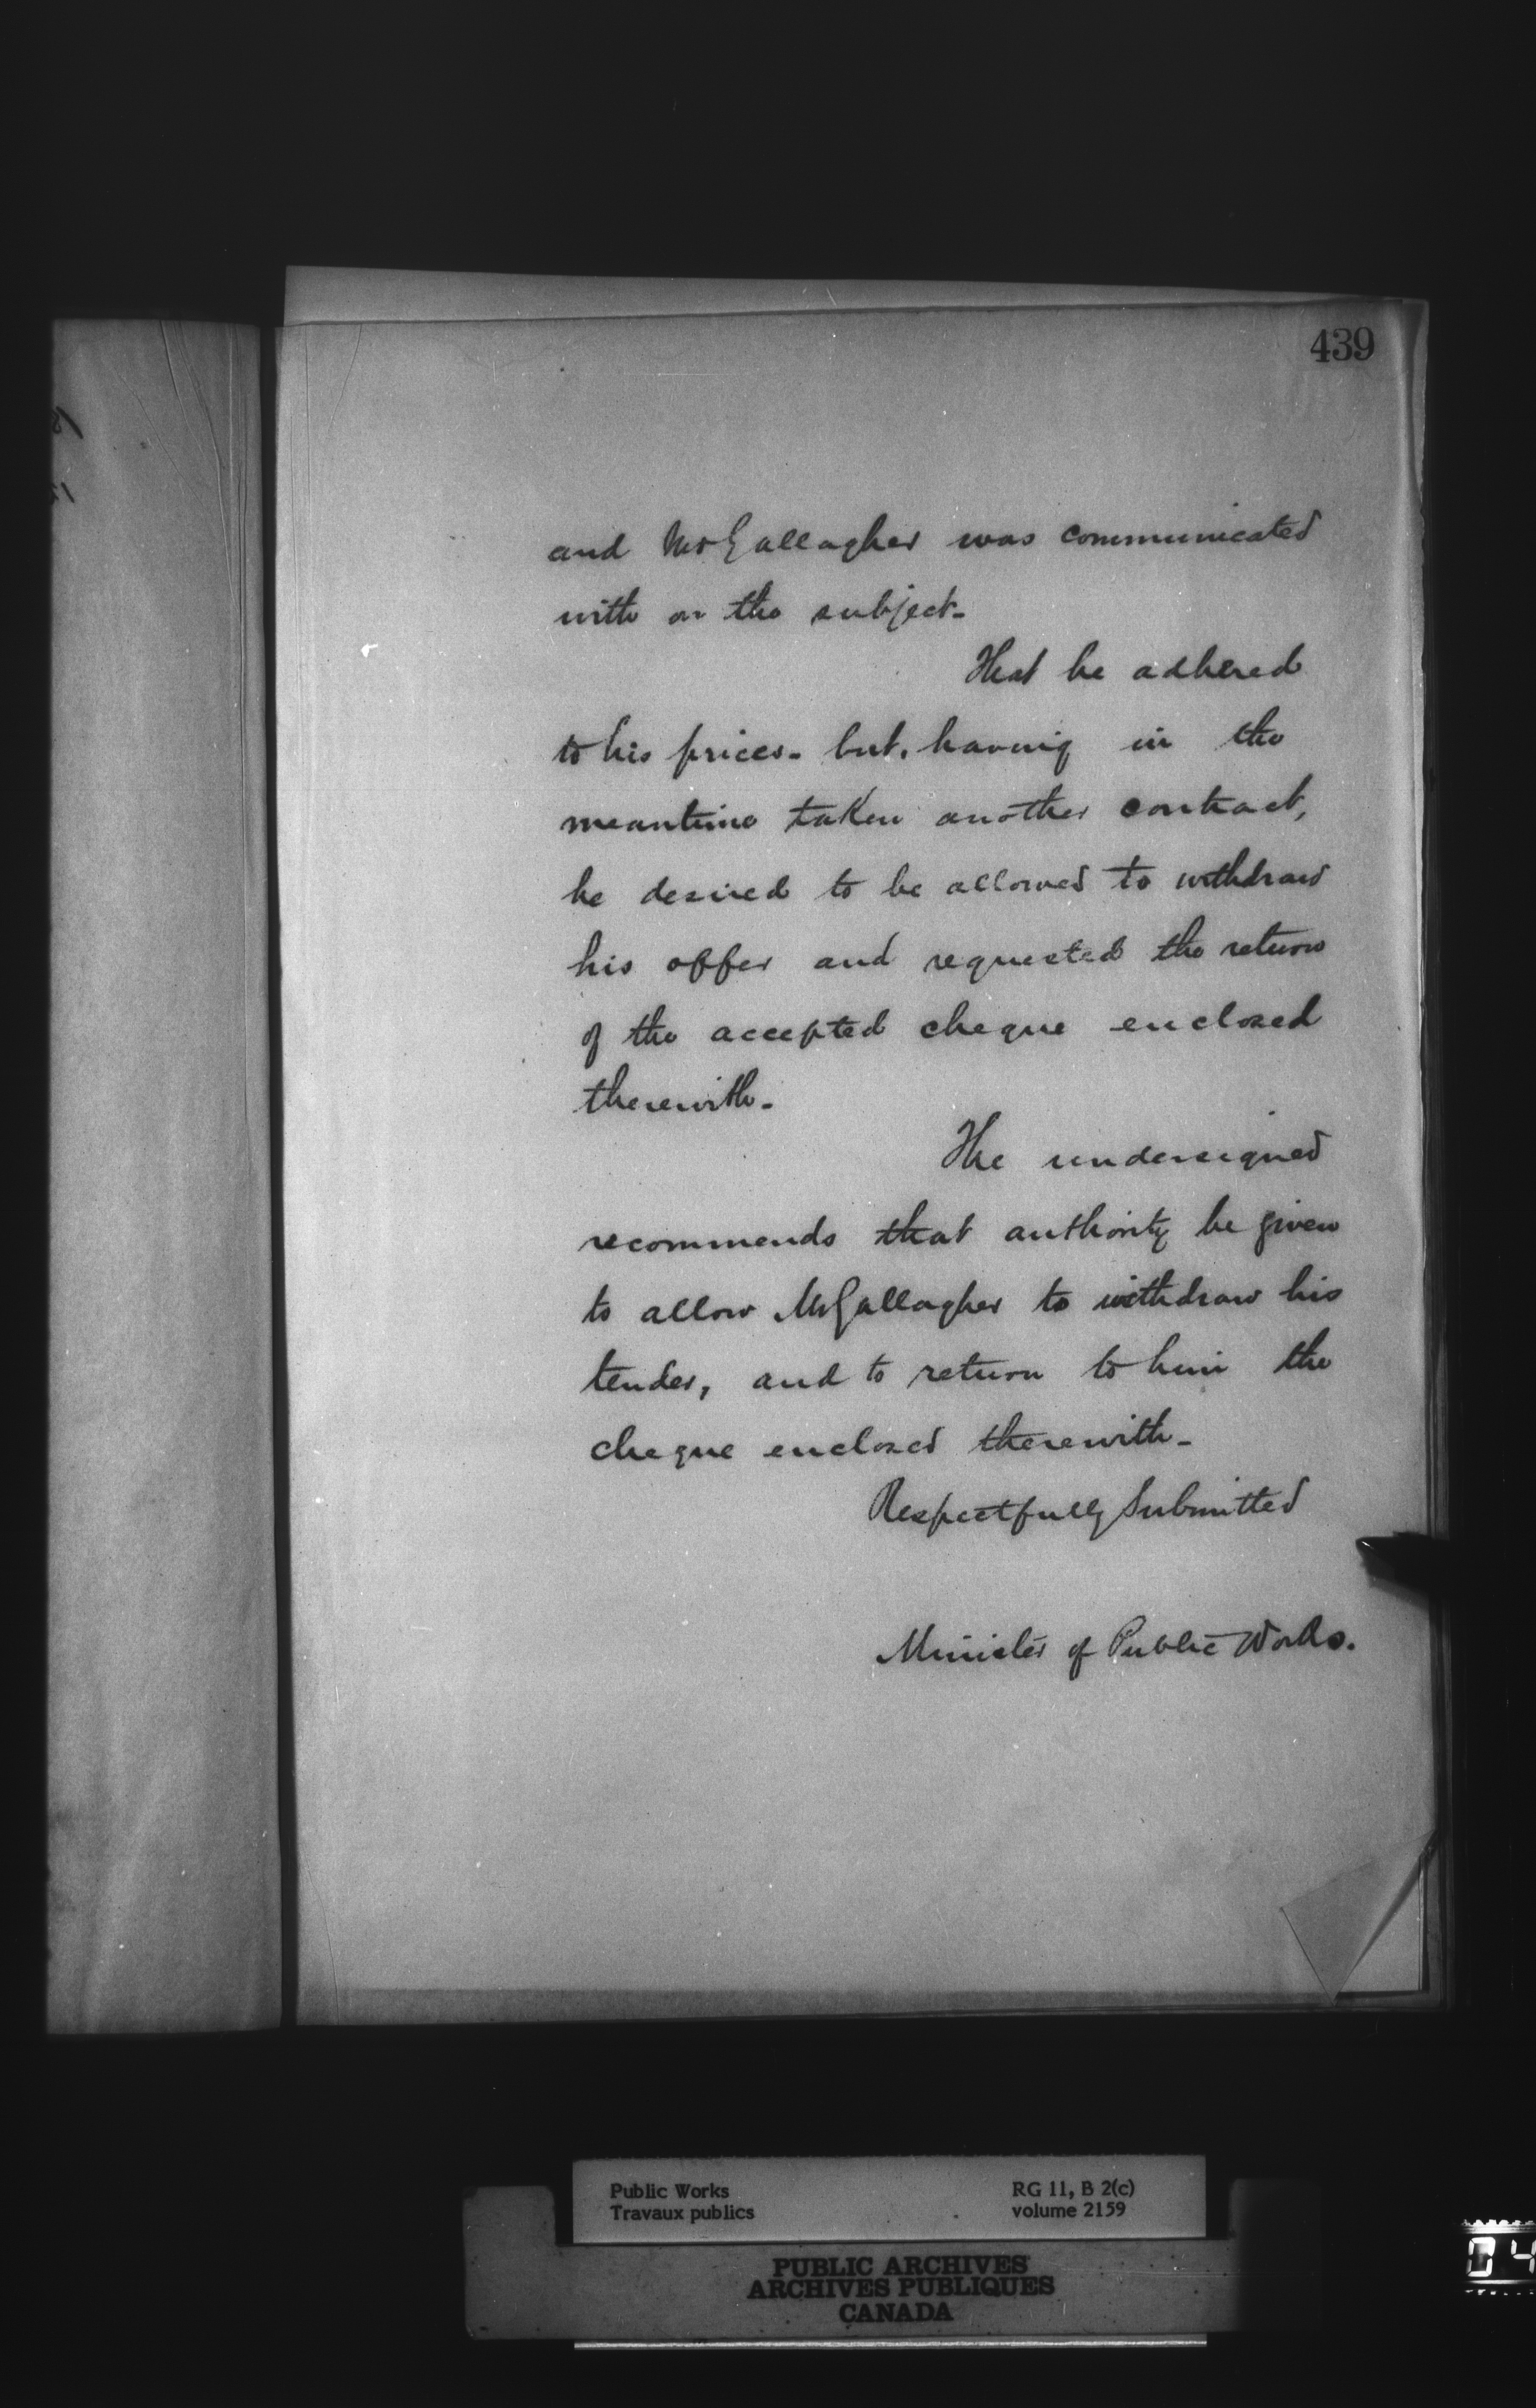 439
and Mr Gallagher was communicated
with on the subject-
That he adhered
to his prices- but, having in the
meantime taken another contract,
he desired to be allowed to withdraw
his offer and requested the return
of the accepted cheque enclosed
therewith-
The undersigned
recommends that authority be given
to allow Mr Gallagher to withdraw his
tender, and to return to him the
cheque enclosed therewith-
Respectfully Submitted
Minister of Public Works.
Public Works
Travaux publics
RG 11, B 2(c)
volume 2159
PUBLIC ARCHIVES
ARCHIVES PUBLIQUES
CANADA